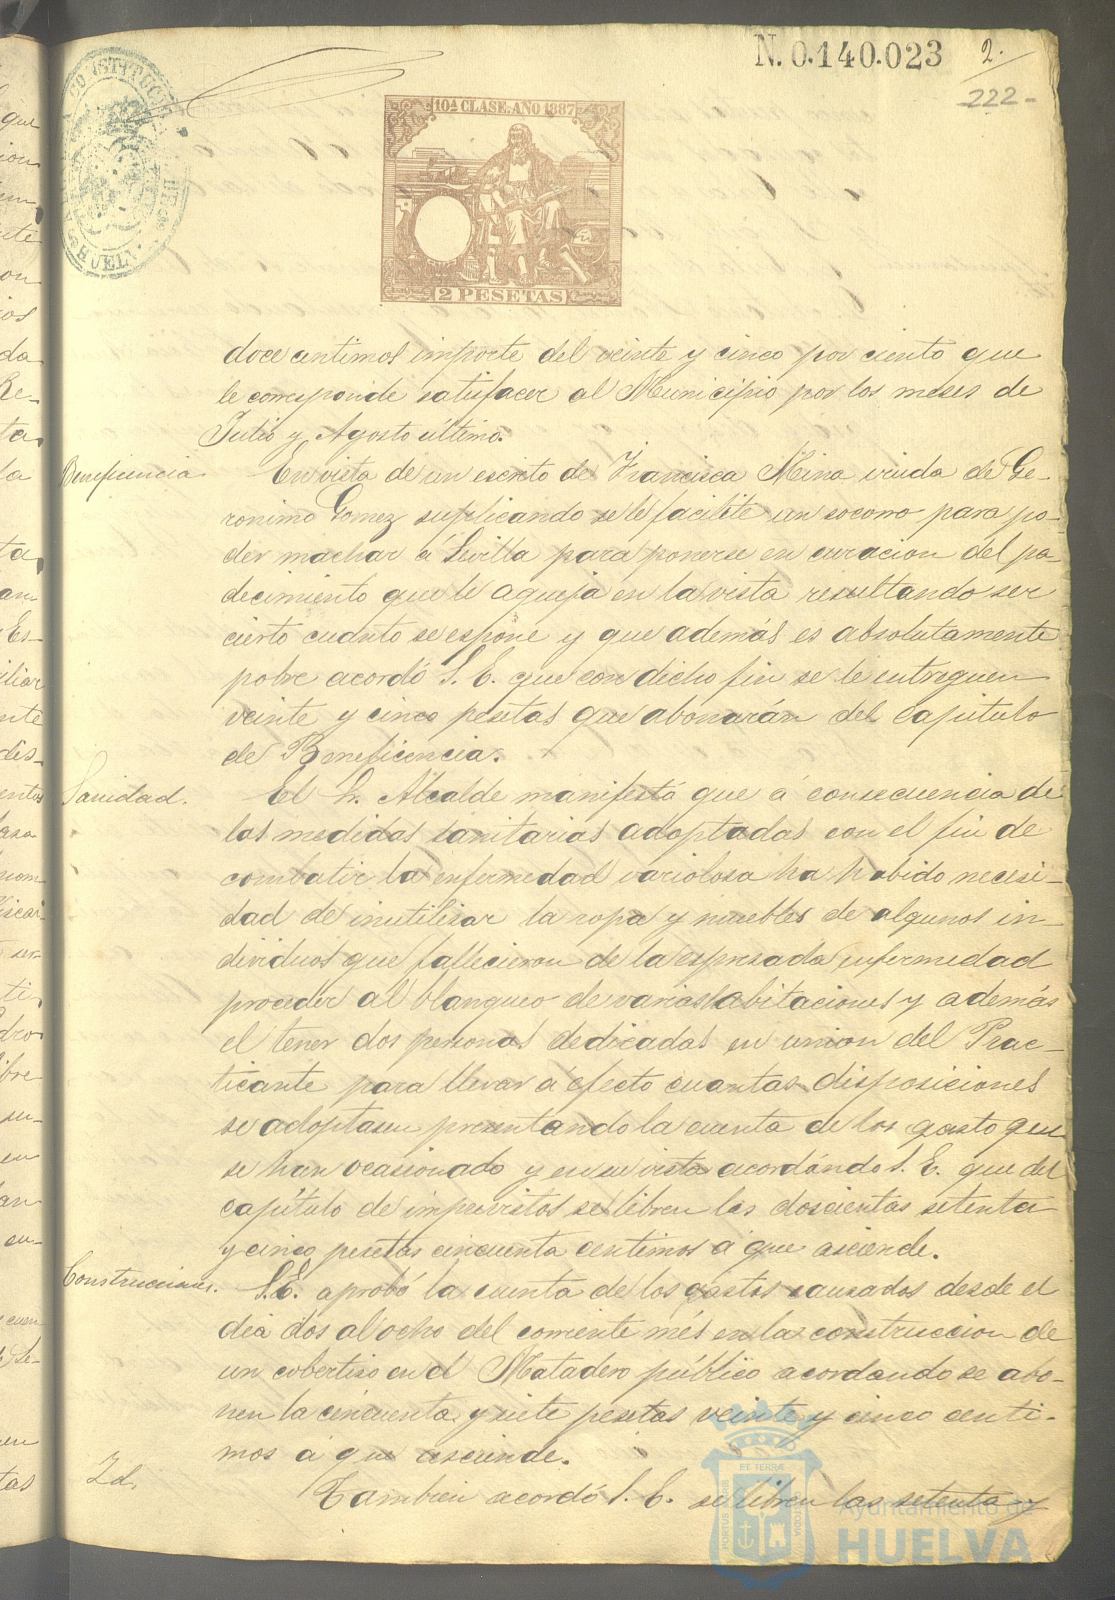 N. 0.140.023
2.
222-
10ª CLASE. AÑO 1887
2 PESETAS
doce centimos importe del veinte y cinco por ciento que
le corresponde satisfacer al Municipio por los meses de
Julio y Agosto último.
Beneficencia
En vista de un escrito de Francisca Mina viuda de Ge-
ronimo Gomez suplicando se le facilite un socorro para po-
der machar á Sevilla para ponerse en curacion del pa-
decimiento que le aqueja en la vista resultando ser
cierto cuanto se espone y que además es absolutamente
pobre acordó S. E. que con dicho fin se le entreguen
veinte y cinco pesetas que abonarán del capitulo
de Beneficencia.
Sanidad.
El Sr. Alcalde manifestó que á consecuencia de
las medidas sanitarias adoptadas con el fin de
combatir la enfermedad variolosa ha habido necesi-
dad de inutilisar la ropa y muebles de algunos in-
dividuos que fallecieron de la espresada enfermedad
proceder al blanqueo de varias habitaciones y además
el tener dos personas dedicadas en union del Prac-
ticante para llevar á efecto cuantas disposiciones
se adoptasen presentando la cuenta de los gasto que
se han ocasionado y en su vista acordándo S. E. que del
capítulo de imprevistos se libren las doscientas setenta
y cinco pesetas cincuenta centimos á que asciende.
Construcciones.
S. E. aprobó la cuenta de los gastos causados desde el
dia dos al ocho del corriente més en la construccion de
un cobertizo en el Matadero público acordando se abo-
nen la cincuenta y siete pesetas veinte y cinco centi-
mos á que asciende.
Id.
Tambien acordó S. E. se libren las setenta y
Ayuntamiento de
HUELVA